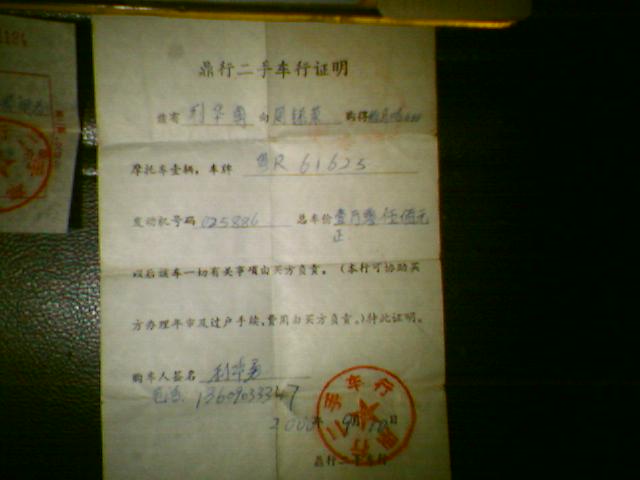 1124
鼎行二手车行证明
兹有 利华 向 购得
摩托车壹辆，车牌 粤R 61625
发动机号码 025886 总车价 壹万 伍佰元
正
以后该车一切有关事项由买方负责。（本行可协助买
方办理年审及过户手续，费用由买方负责。）特此证明。
购车人签名 利华
电话. 13609033347
年 9月 10日
鼎行二手车行